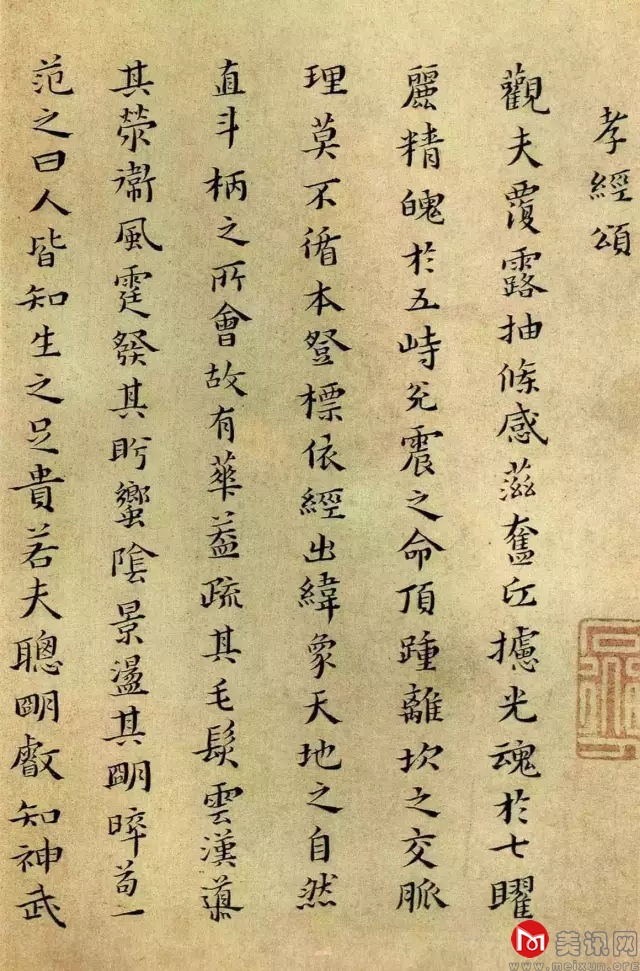 孝經頌
觀夫覆露抽條感滋奮攄光魂於七曜
麗精魄於五峙兌震之命頂踵離坎之交脈
理莫不循本登標依經出緯象天地之自然
直斗柄之所會故有華葢疏其毛髮雲漢導
其滎衞風霆發其肸蠁陰景盪其明晬苟一
范之曰人皆知生之足貴若夫聰明叡知神武
美讯网
www.meixun.org